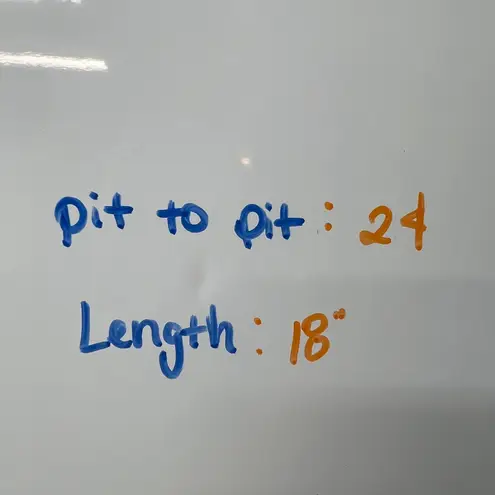 pit to pit : 24
Length : 18"